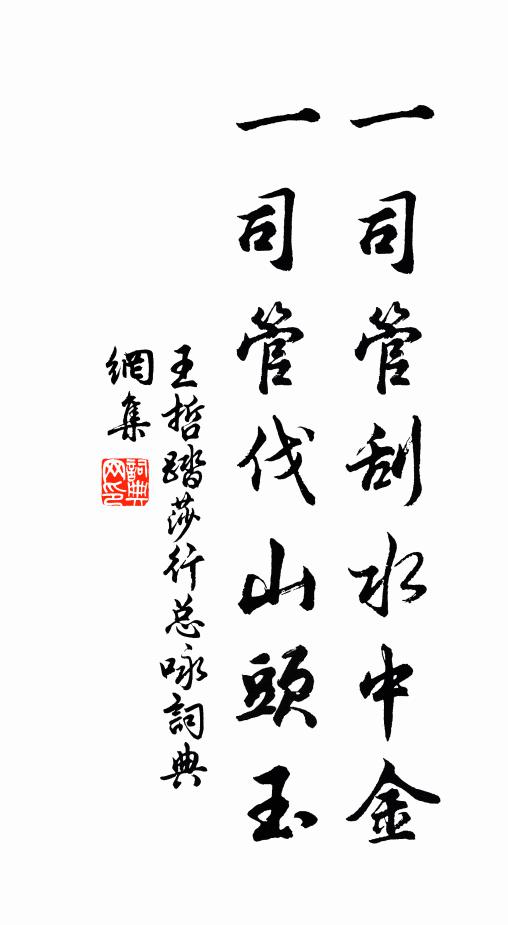 一司管刮水中金
一司管伐山頭玉
王哲踏莎行总咏詞典
網集
詞典网印